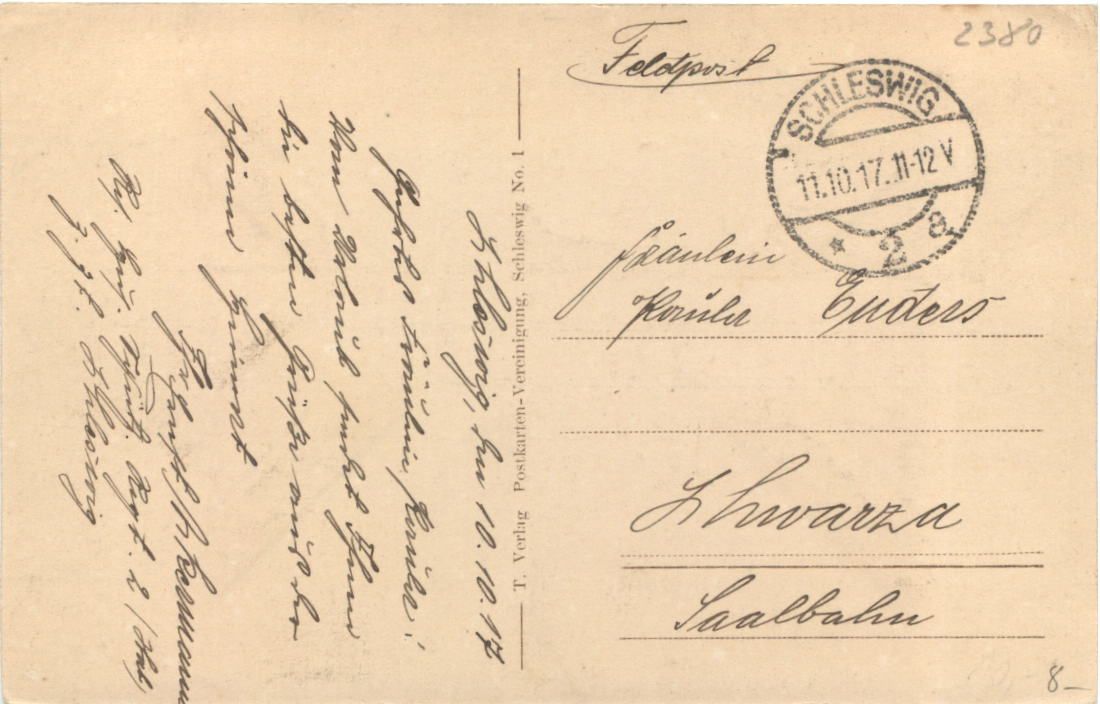 Schleswig, den 10.10.17
Geehrtes Fräulein Paula!
Vom Urlaub sendet Ihnen
die besten Grüße aus der
schönen Heimat
Ihr
Res. Hus. Schütz. Regt. 2
z. Zt. Schleswig
T. Verlag Postkarten-Vereinigung, Schleswig No. 1
2380
Feldpost
SCHLESWIG
11.10.17.11-12 V
* 2 a
Fräulein
Paula Enders
Schwarza
Saalbahn
8-